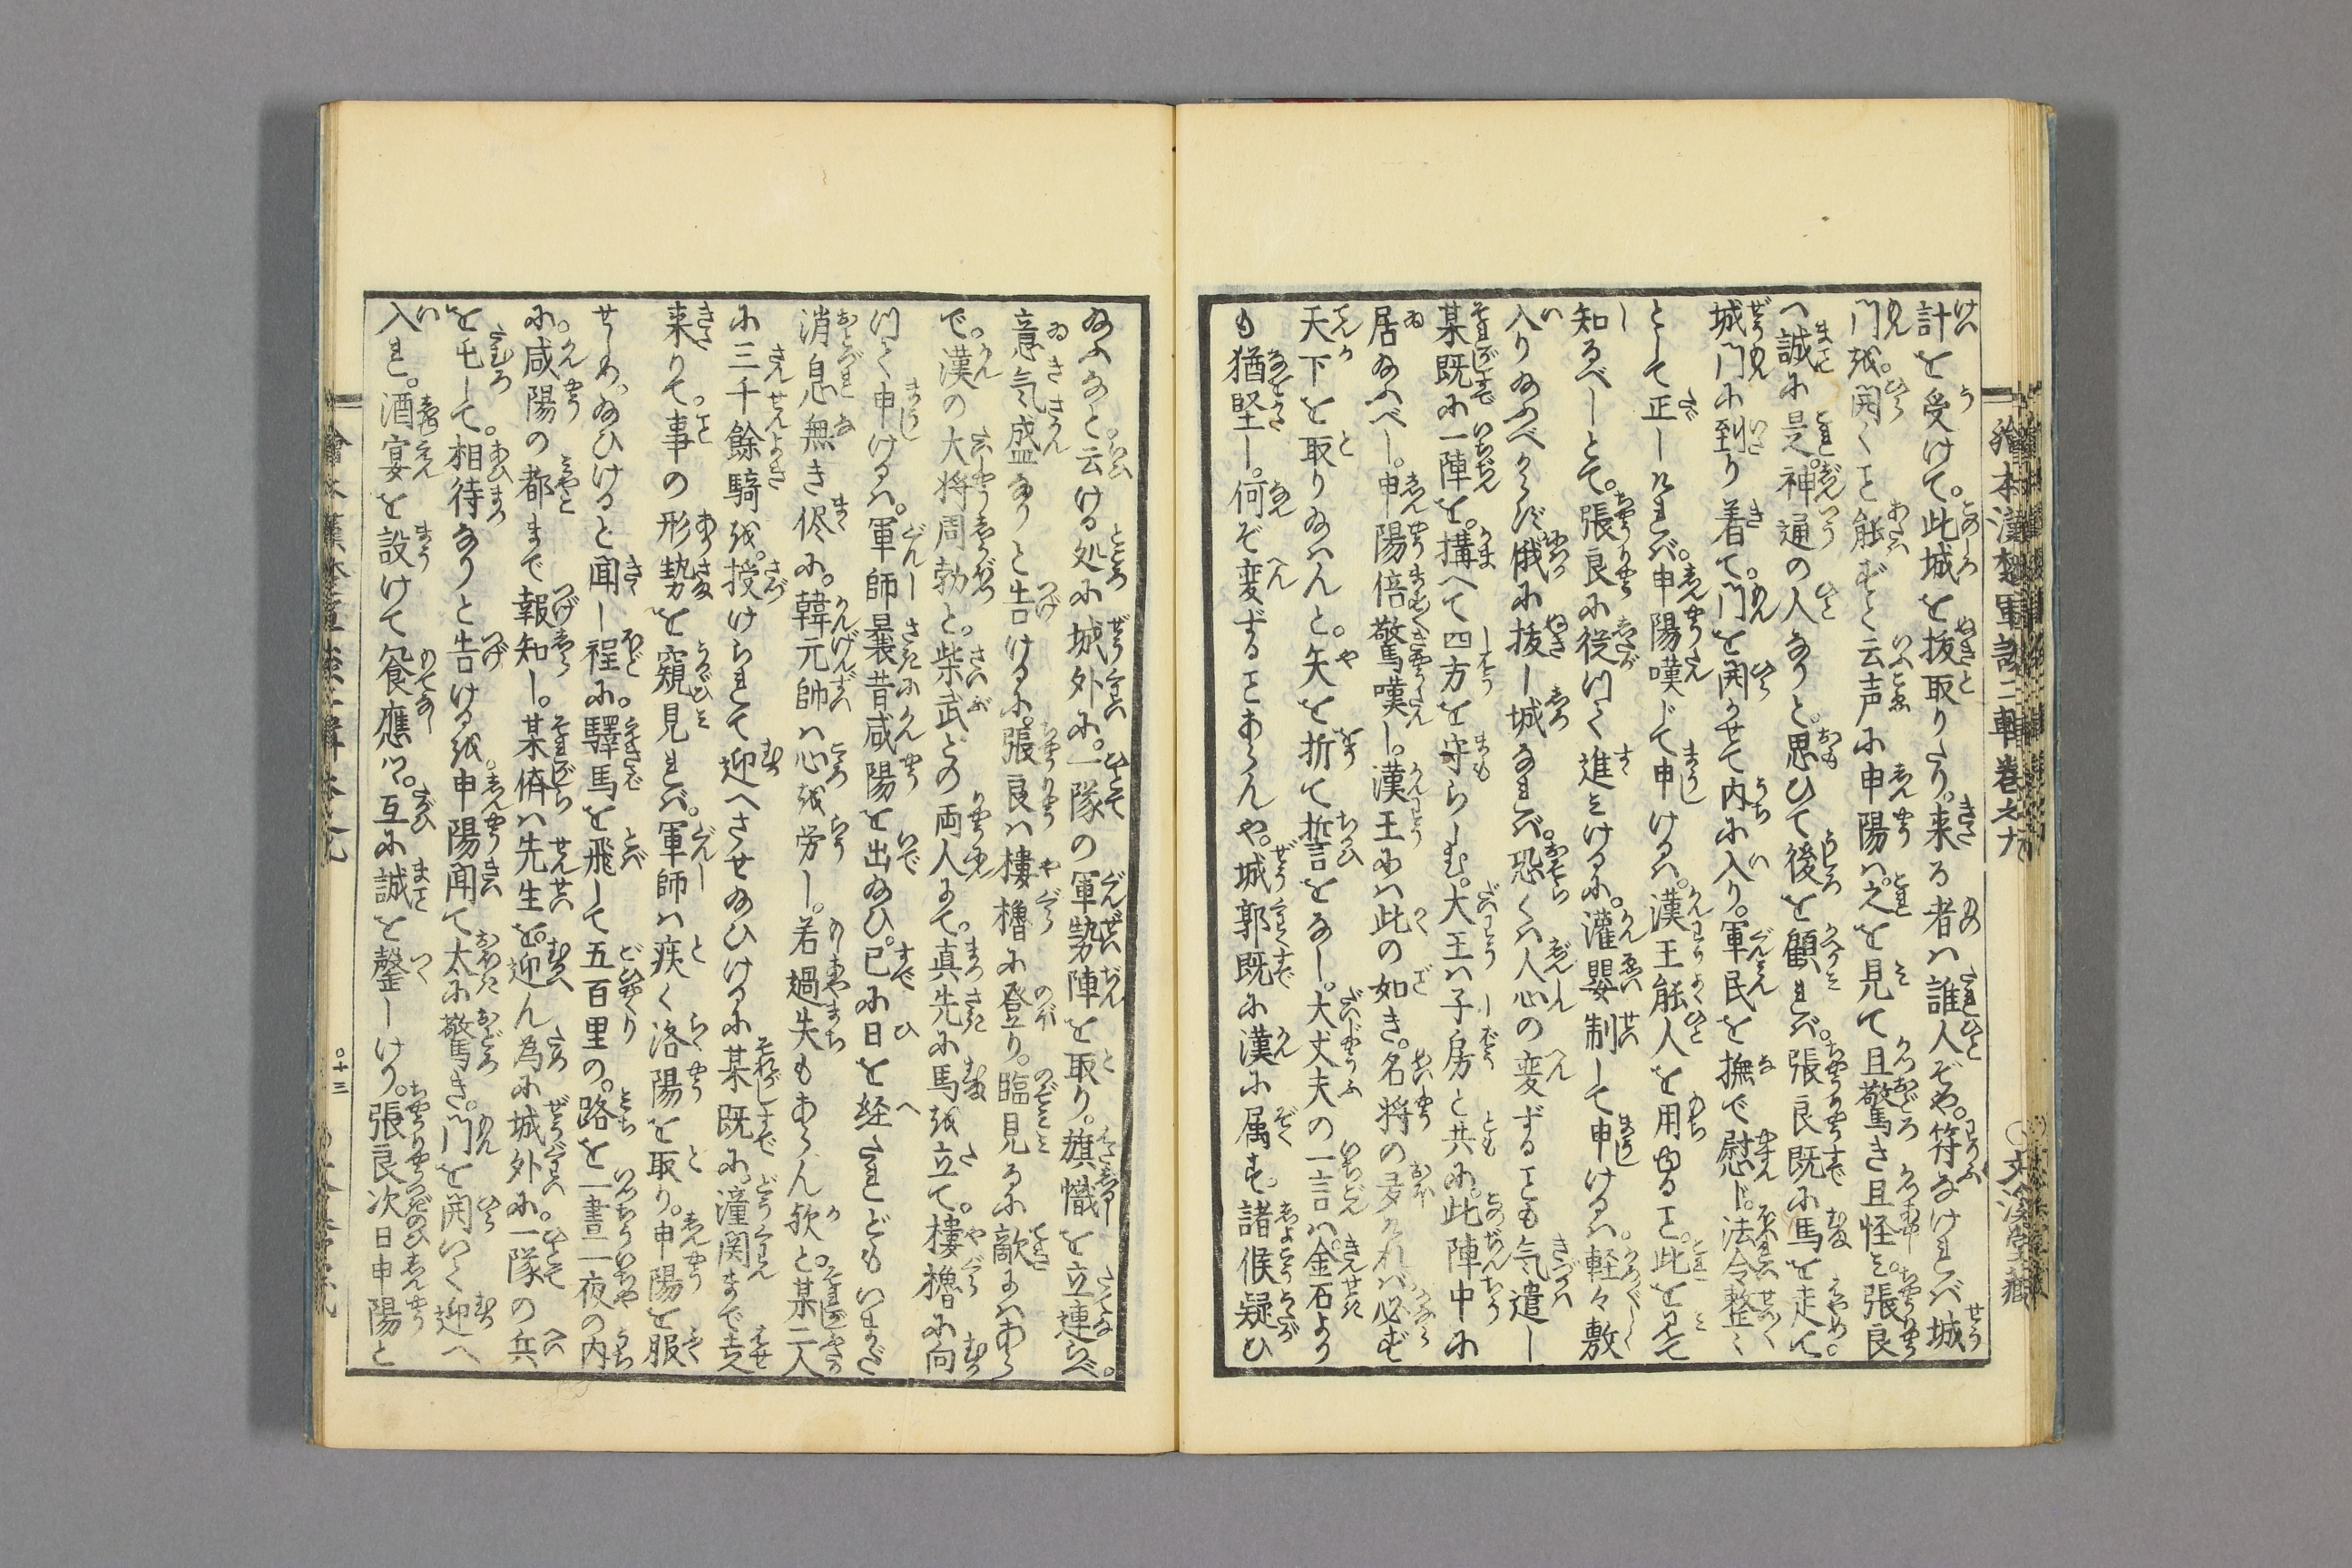 計を受けて。此城を抜取りたり。来る者は誰人ぞや。符なければ城
門を。開くこと能ずと云声に申陽は。之を見て且驚き且怪み。張良
へ誠に是。神通の人なりと。思ひて後を顧れば。張良既に馬を走て。
城門に到り着て。門を開かせて内に入り。軍民を撫で慰じ。法令整〻
として正しければ。申陽嘆じて申けるは。漢王能人を用ゆること。此を見て
知るべしとて。張良に従つて進みけるに。灌嬰制して申けるは。軽々敷
入り給ふべからず。俄に抜し城なれば。恐くは人心の変ずることも気遣し
某既に一陣を。搆へて四方を守らしむ。大王は子房と共に。此陣中に
居給ふべし。申陽倍驚嘆し。漢王には此の如き。名将の多ければ必ず
天下を取り給はんと。矢を折て誓言をなし。大丈夫の一言は。金石より
も猶堅し。何ぞ変ずることあらんや。城郭既に漢に属す。諸候疑ひ
給ふなと云ける処に城外に。一隊の軍勢陣を取り。旗幟を立連らべ。
意気盛なりと告けるに。張良は樓櫓に登り。臨見るに敵にはあら
で。漢の大将周勃と。柴武との両人にて。真先に馬を立て。樓櫓に向
つて申けるは。軍師曩昔咸陽を出給ひ。已に日を経たれどもいまだ
消息無き侭に。韓元帥は心を労し。若過失もあらん歟と。某二人
に三千餘騎を。授けられて迎へさせ給ひけるに某既に。潼関まで走
来りて事の形勢を窺見れば。軍師は疾く洛陽を取り。申陽を服
せしめ。給ひけると聞し程に。驛馬を飛して五百里の。路を一晝二夜の内
に。咸陽の都まで報知し。某儕は先生を。迎ん為に城外に。一隊の兵
を屯して。相待なりと告ける を。申陽聞て太に驚き。門を開いて迎へ
入れ。酒宴を設けて飡應し。互に誠を罄しけり。張良次日申陽と
繪本漢楚軍談二輯卷之九
〇文溪堂藏
〇十三